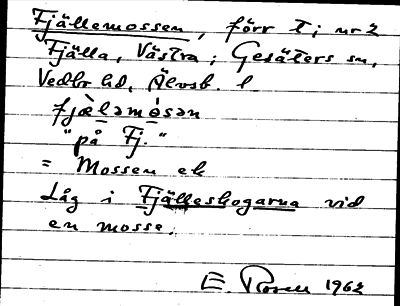 Fjällemossen, förr t; nr 2
Fjälla, Västra; Gesäters sn,
Vedbo hd, Älvsb. l.
fjæ̀ləmósən
"på Fj."
= Mossen ek
Låg i Fjälleskogarna vid
en mosse.
E. Rosell 1962